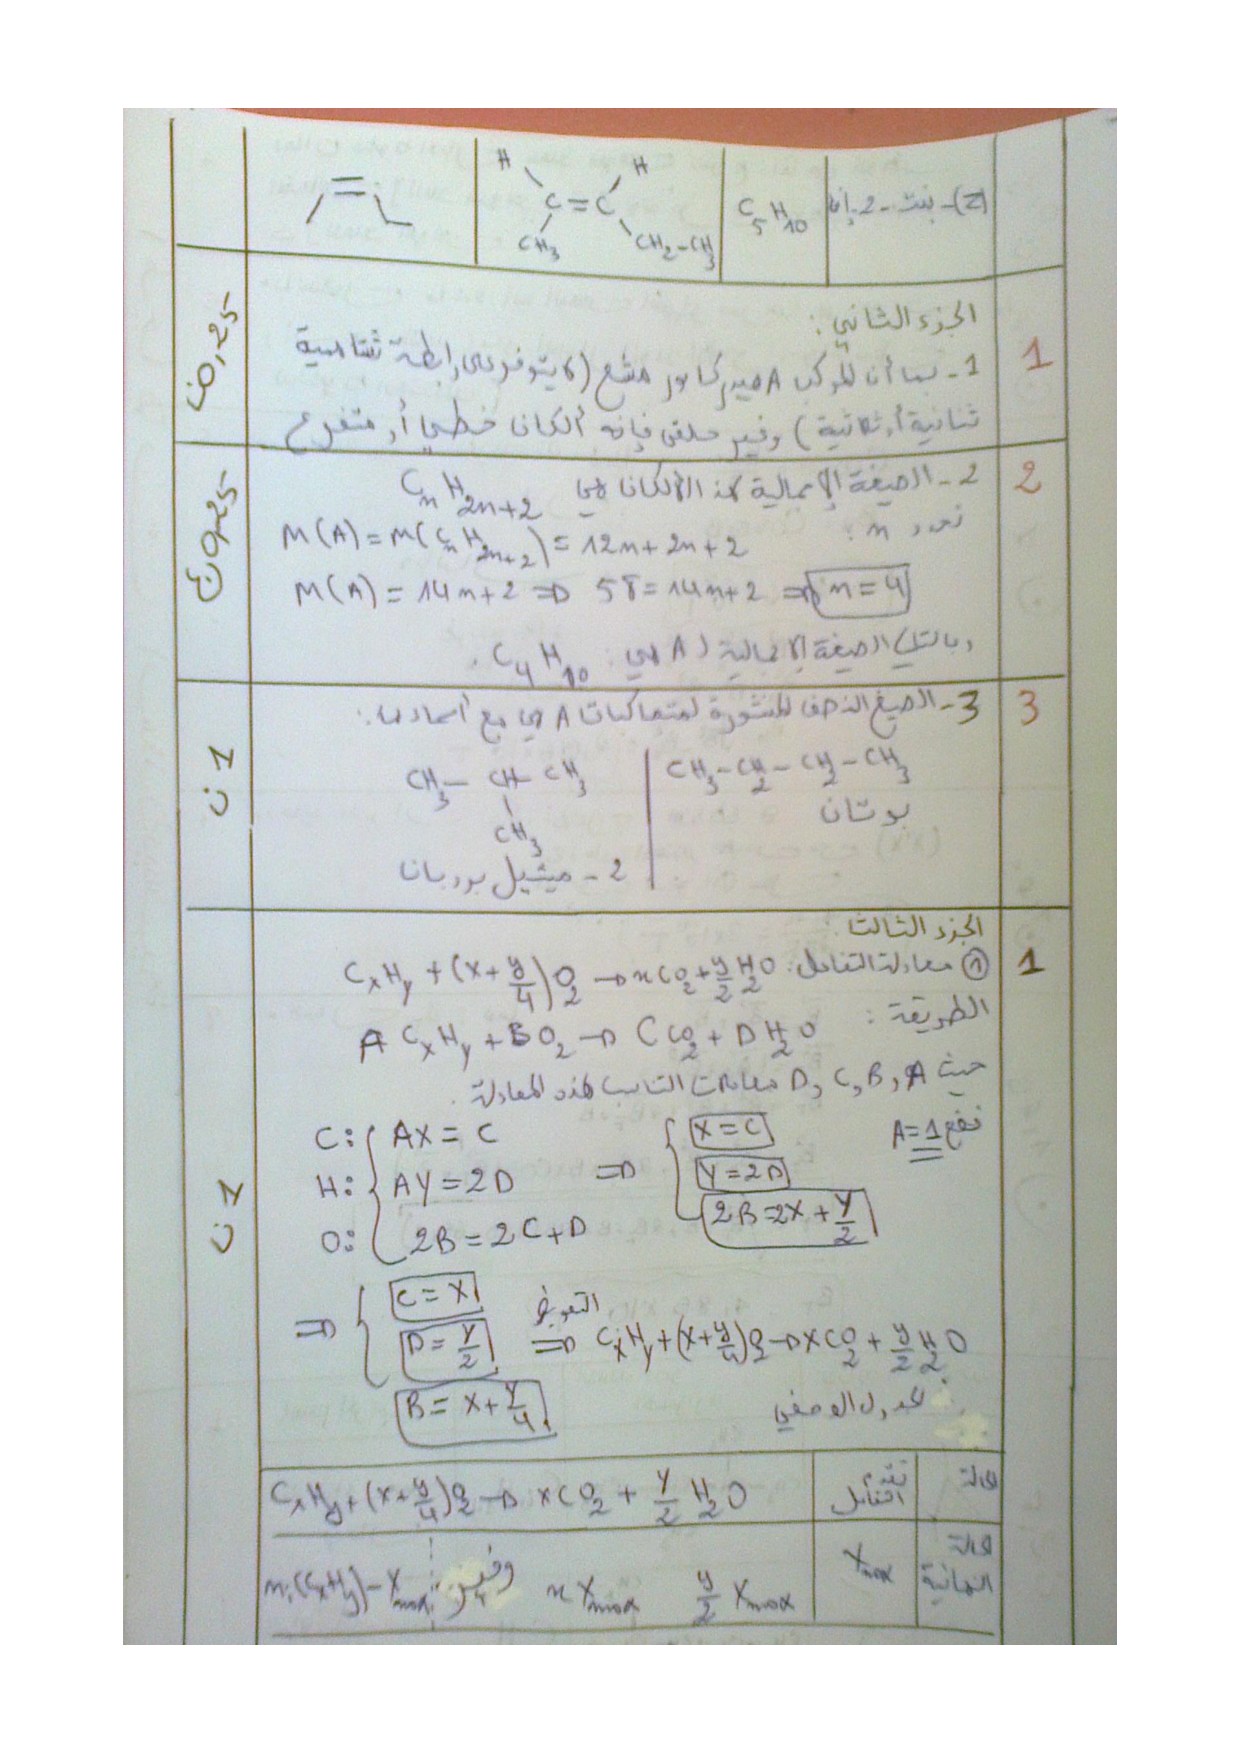 (Z)-بنت-2-إن C5H10 H H C=C CH3 CH2-CH3
الجزء الثاني :
1 1- بما أن المركب A هيدركابور مشبع (لا يتوفر على رابطة تساهمية 0,25ن
ثنائية أو ثلاثية) وغير حلقي فإنه ألكان خطي أو متفرع
2 2- الصيغة الإجمالية لهذا الألكان هي CnH2n+2 0,25ن
نحدد n :
M(A) = M(CnH2n+2) = 12n+2n+2
M(A) = 14n+2 => 58=14n+2 => n=4
وبالتالي الصيغة الإجمالية ل A هي : C4H10 .
3 3- الصيغ النصف المنشورة لمتماكبات A هي مع أسماءها: 1ن
CH3-CH2-CH2-CH3
بوتان
CH3-CH-CH3
CH3
2-ميثيل بروبان
الجزء الثالث
1 ① معادلة التفاعل: CxHy+(x+y/4)O2 → xCO2+y/2H2O 1ن
الطريقة :
A CxHy + BO2 → C CO2 + D H2O
حيث A ,B ,C ,D معاملات التناسب لهذه المعادلة .
نضع A=1
C: AX = C => X=C
H: AY=2D Y=2D
O: 2B=2C+D 2B=2X+Y/2
=> C=X
D=Y/2 التعويض => CxHy+(x+y/4)O2→XCO2+y/2H2O
B=X+Y/4
الجدول الوصفي
الحالة تقدم التفاعل CxHy+(x+y/4)O2→xCO2+Y/2 H2O
الحالة النهائية Xmax ni(CxHy)-Xmax وفير xXmax y/2 Xmax